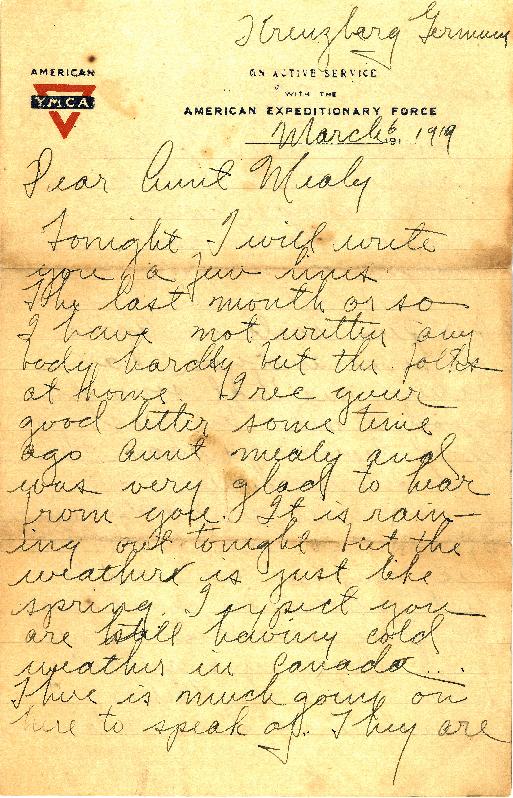 Kreuzbarg Germany
AMERICAN
Y.M.C.A
ON ACTIVE SERVICE
WITH THE
AMERICAN EXPEDITIONARY FORCE
March 6 191 1919
Dear Aunt Mealy
Tonight I will write
you a few lines
The last month or so
I have not written any
body hardly but the folks
at home. I rec your
good letter some time
ago Aunt Mealy and
was very glad to hear
from you. It is rain-
ing out tonight but the
weather is just like
spring. I expect you
are still having cold
weather in Canada...
There is much going on
here to speak of. They are